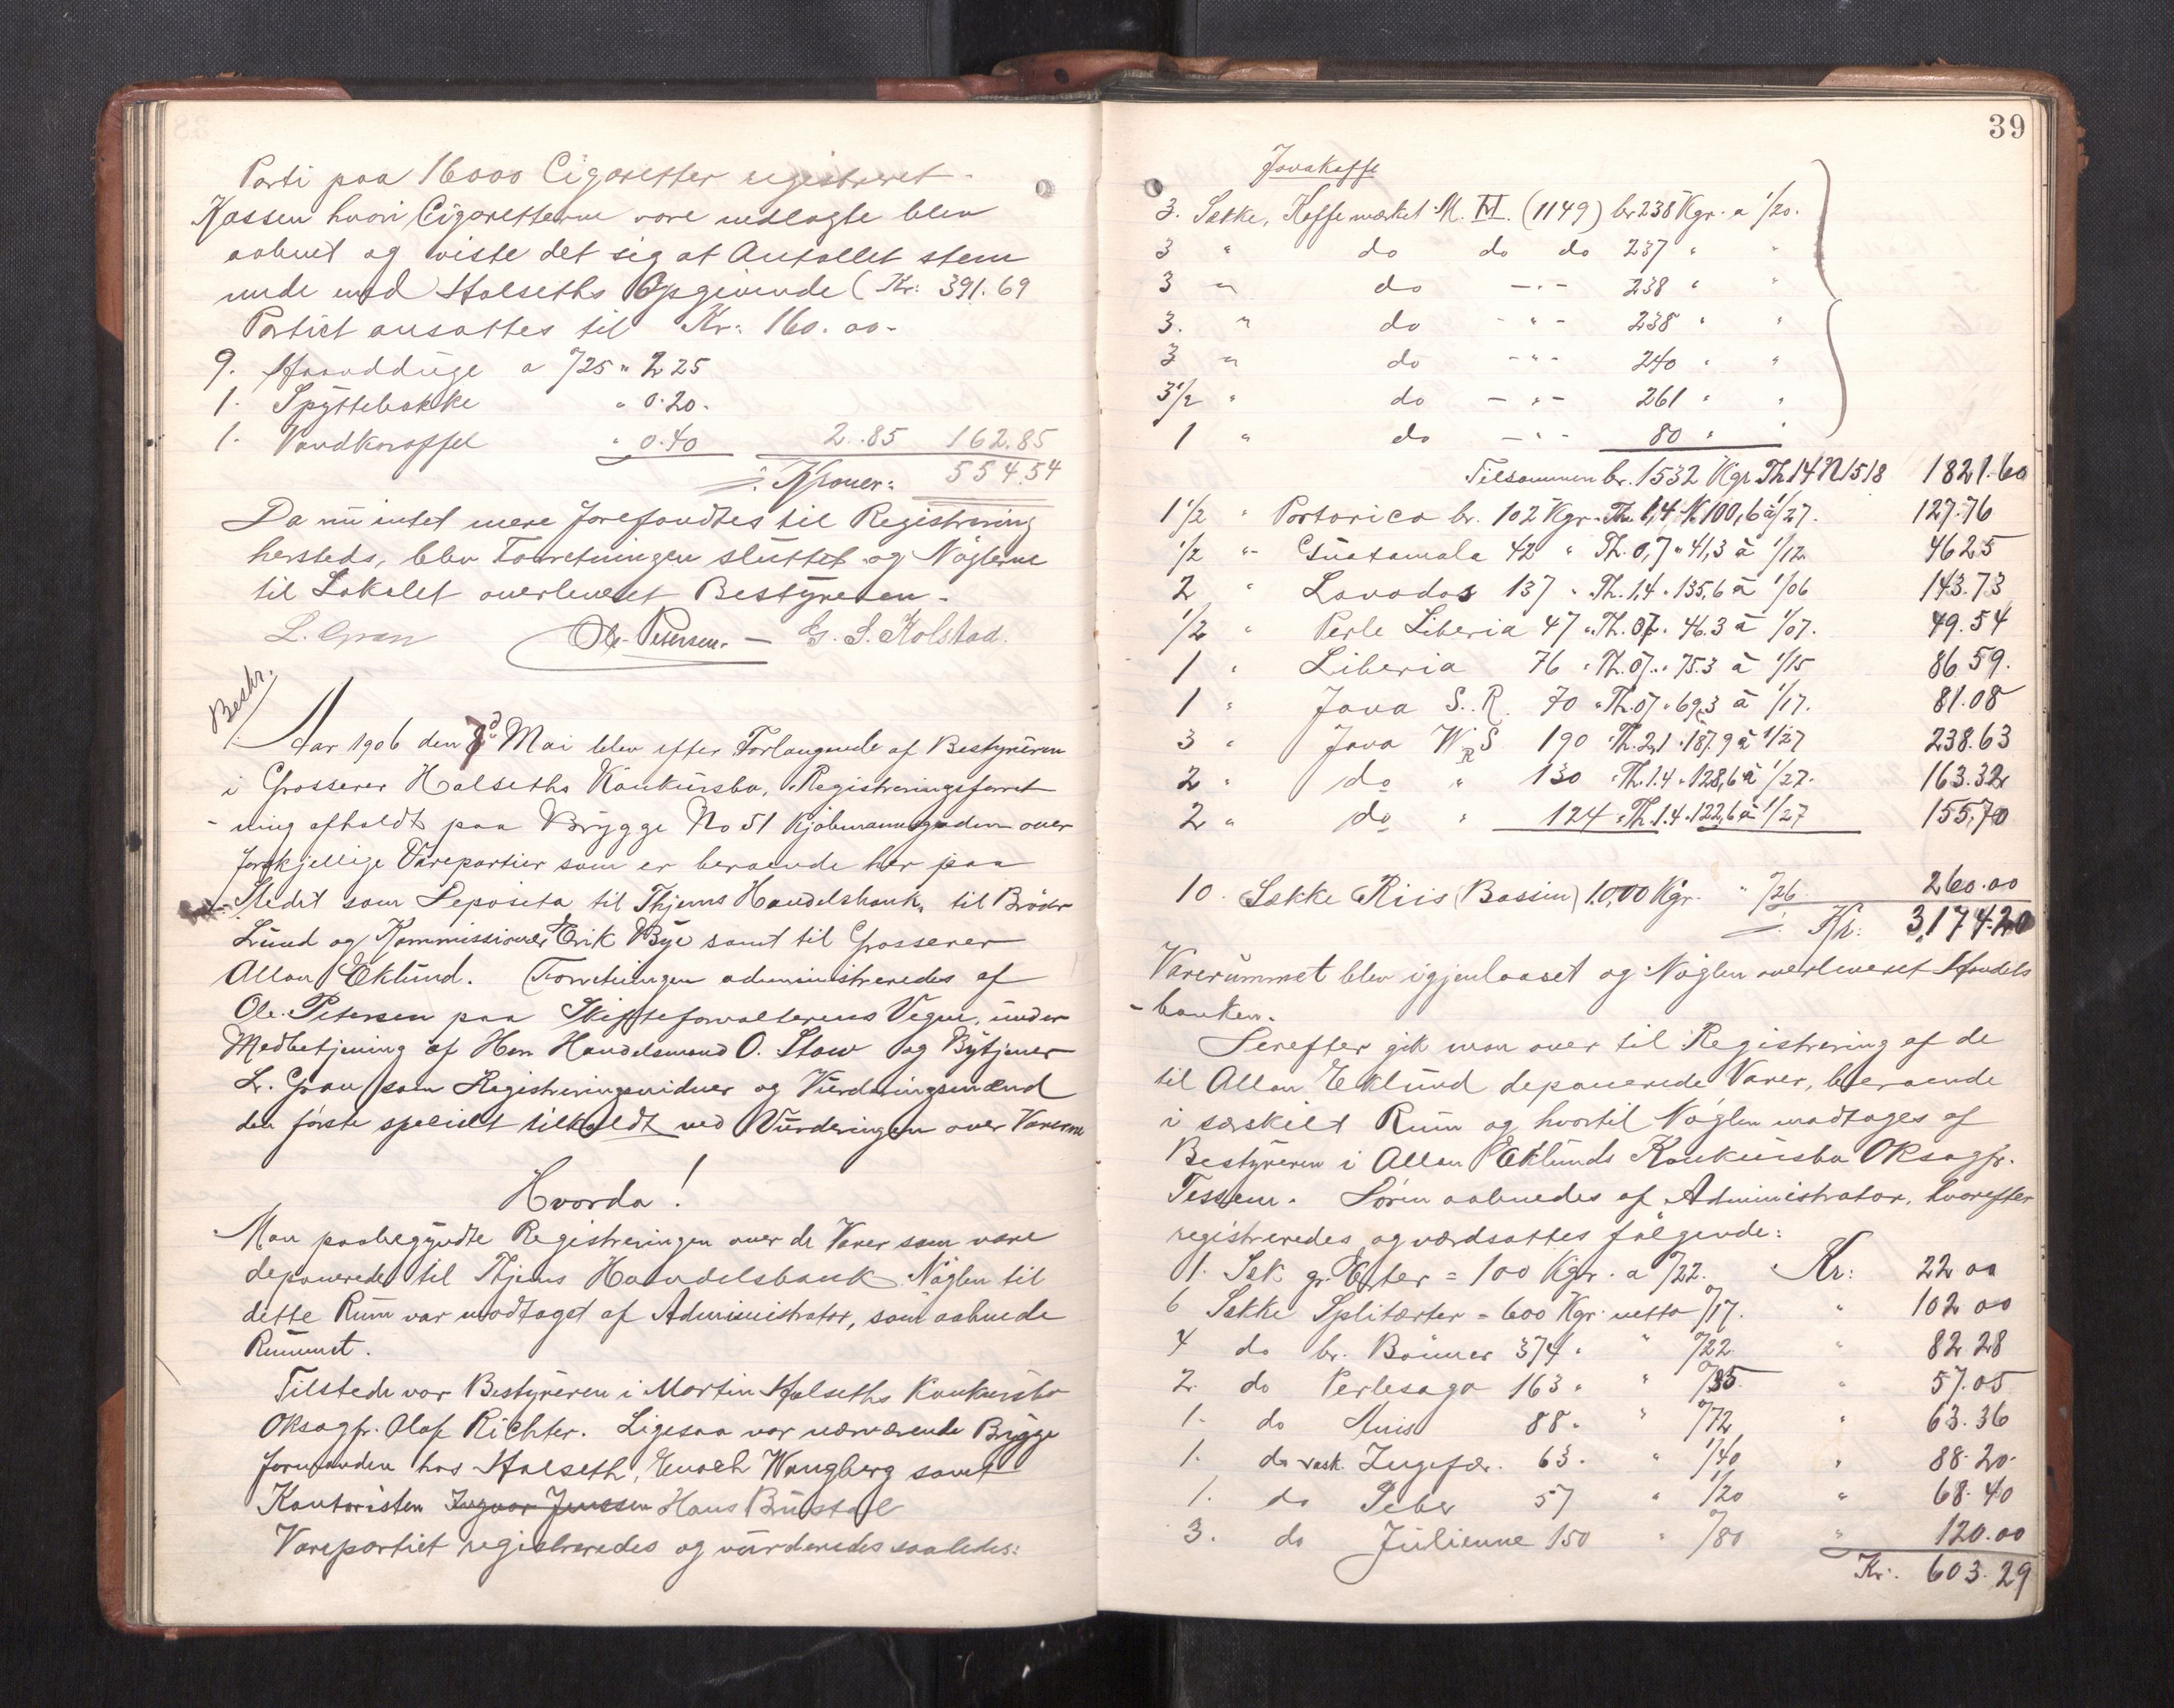 Parti paa 16000 Cigaretter registreret.
Kassen hvori Cigaretterne vare indlagte blev
aabnet og viste det sig at Antallet stem
mede med Halseths Opgivende (Kr: 391.69
Partiet ansattes til Kr: 160.00-
9. Haandduge a /25 " 2 25
1. Spyttebakke " 0.20.
1. Vandkaraffel " 0.40 2.85 162.85
Kroner: 554.54
Da nu intet mere forefandtes til Registrering
hersteds, blev Forretningen sluttet og Nøglerne
til Lokalet overleveret Bestyreren.
L. Gran Ole Petersen. — G. S. Kolstad.
Bestr.
Aar 1906 den Mai blev efter Forlangende af Bestyreren
i Grosserer Halseths Konkursbo, Registreringsforret
-ning afholdt paa Brygge No 51 Kjøbmannsgaden over
forskjellige Varepartier som er beroende her paa
Stedet som Deposita til Thjems Handelsbank, til Brødr
Lund og Kommissionær Erik Bye samt til Grosserer
Allan Eklund. Forretningen administreredes af
Ole Petersen paa Skifteforvalterens Vegne, under
Medbetjening af Herr Handelsmand O. Stav og Bytjener
L. Gran som Registreringsvidner og Vurderingsmænd
den første specielt tilkaldt ved Vurderingen over Varerne
Hvorda!
Man paabegyndte Registreringen over de Varer som vare
deponerede til Thjems Handelsbank. Nøglen til
dette Rum var modtaget af Administrator, som aabnede
Rummet.
Tilstede var Bestyreren i Martin Halseths Konkursbo
Oksagfr. Olaf Richter. Ligesaa var nærværende Brygge
formanden hos Halseth, Enoch Wangberg samt
Kontoristen Ingvar Jenssen Hans Brustad
Varepartiet registreredes og vurderedes saaledes:
39
Javakaffe
3. Sække, Kaffe mærket M. (1149) br 238 Kgr. a 1/20.
3 " do do do 237 " "
3 " do -"- 238 " "
3. " do -"- 238 " "
3 " do -"- 240 " "
3 1/2 " do -"- 261 " "
1 " do -"- 80 " "
Tilsammen br. 1532 Kgr Th 14 N 1518 1821.60
1 1/2 " Portorico br. 102 Kgr. Th. 1,4 N 100,6 à 1/27. 127.76
1/2 " Guatamala 42 " Th. 0,7 " 41,3 à 1/12 46 25
2 " Lavados 137 " Th. 1,4 " 135,6 à 1/06 143.73
1/2 " Perle Liberia 47 " Th. 07. 46.3 à 1/07. 49.54
1 " Liberia 76 " Th. 07. " 75.3 à 1/15 86 59.
1 " Java S. R. 70 " Th. 07 " 69,3 à 1/17. 81.08
3 " Java W. S R 190 " Th. 2,1 " 187,9 à 1/27 238.63
2 " do " 130 " Th. 1.4 " 128,6 à 1/27. 163.32
2 " do " 124 " Th. 1.4 " 122,6 à 1/27 155,70
10. Sække Riis (Bassin) 1000 Kgr. " /26 260.00
Kr: 3,174.20
Varerummet blev igjenlaaset og Nøglen overleveret Handels
-banken.
Derefter gik man over til Registrering af de
til Allan Eklund deponerede Varer, beroende
i særskilt Rum og hvortil Nøglen modtages af
Bestyreren i Allan Eklunds Konkursbo Oksagfr.
Tessem. Døren aabnedes af Administrator, hvorefter
registreredes og værdsattes følgende:
1. Sæk gr. Erter = 100 Kgr. a /22. Kr: 22 00
6 Sække Splitærter = 600 Kgr. netto /17. " 102 00
4 do br. Bønner 374 " " /22 " 82 28
2. do Perlesago 163 " " /35 " 57.05
1. do Anis 88 " " /72 " 63.36
1. do vask. Ingefær. 63. " 1/40 " 88.20.
1. do Peber 57 " 1/20 " 68.40
3. do Julienne 150 " /80 " 120.00
Kr. 603.29